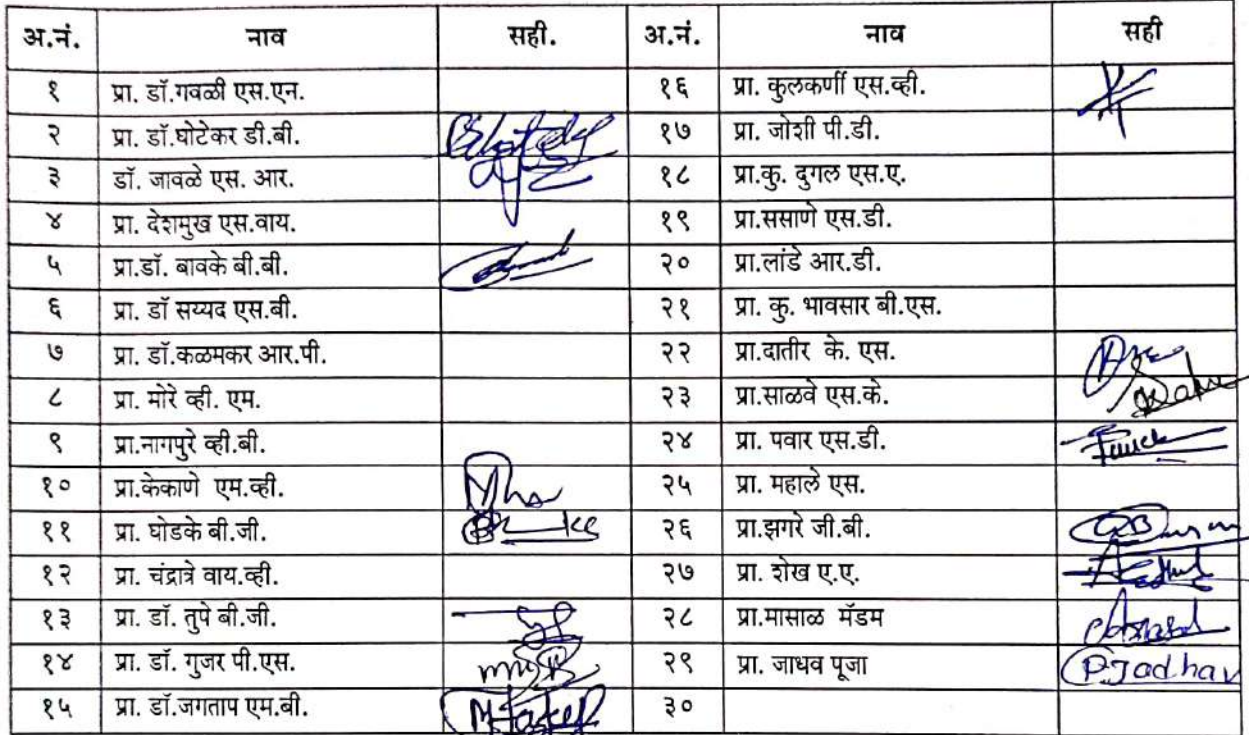 अ.नं. नाव सही. अ.नं. नाव सही
१ प्रा. डॉ.गवळी एस.एन. १६ प्रा. कुलकर्णी एस.व्ही.
२ प्रा. डॉ.घोटेकर डी.बी. १७ प्रा. जोशी पी.डी.
३ डॉ. जावळे एस. आर. १८ प्रा.कु. दुगल एस.ए.
४ प्रा. देशमुख एस.वाय. १९ प्रा.ससाणे एस.डी.
५ प्रा.डॉ. बावके बी.बी. २० प्रा.लांडे आर.डी.
६ प्रा. डॉ सय्यद एस.बी. २१ प्रा. कु. भावसार बी.एस.
७ प्रा. डॉ.कळमकर आर.पी. २२ प्रा.दातीर के. एस.
८ प्रा. मोरे व्ही. एम. २३ प्रा.साळवे एस.के.
९ प्रा.नागपुरे व्ही.बी. २४ प्रा. पवार एस.डी.
१० प्रा.केकाणे एम.व्ही. २५ प्रा. महाले एस.
११ प्रा. घोडके बी.जी. २६ प्रा.झगरे जी.बी.
१२ प्रा. चंद्रात्रे वाय.व्ही. २७ प्रा. शेख ए.ए.
१३ प्रा. डॉ. तुपे बी.जी. २८ प्रा.मासाळ मॅडम
१४ प्रा. डॉ. गुजर पी.एस. २९ प्रा. जाधव पूजा P.Jadhav
१५ प्रा. डॉ.जगताप एम.बी. ३०